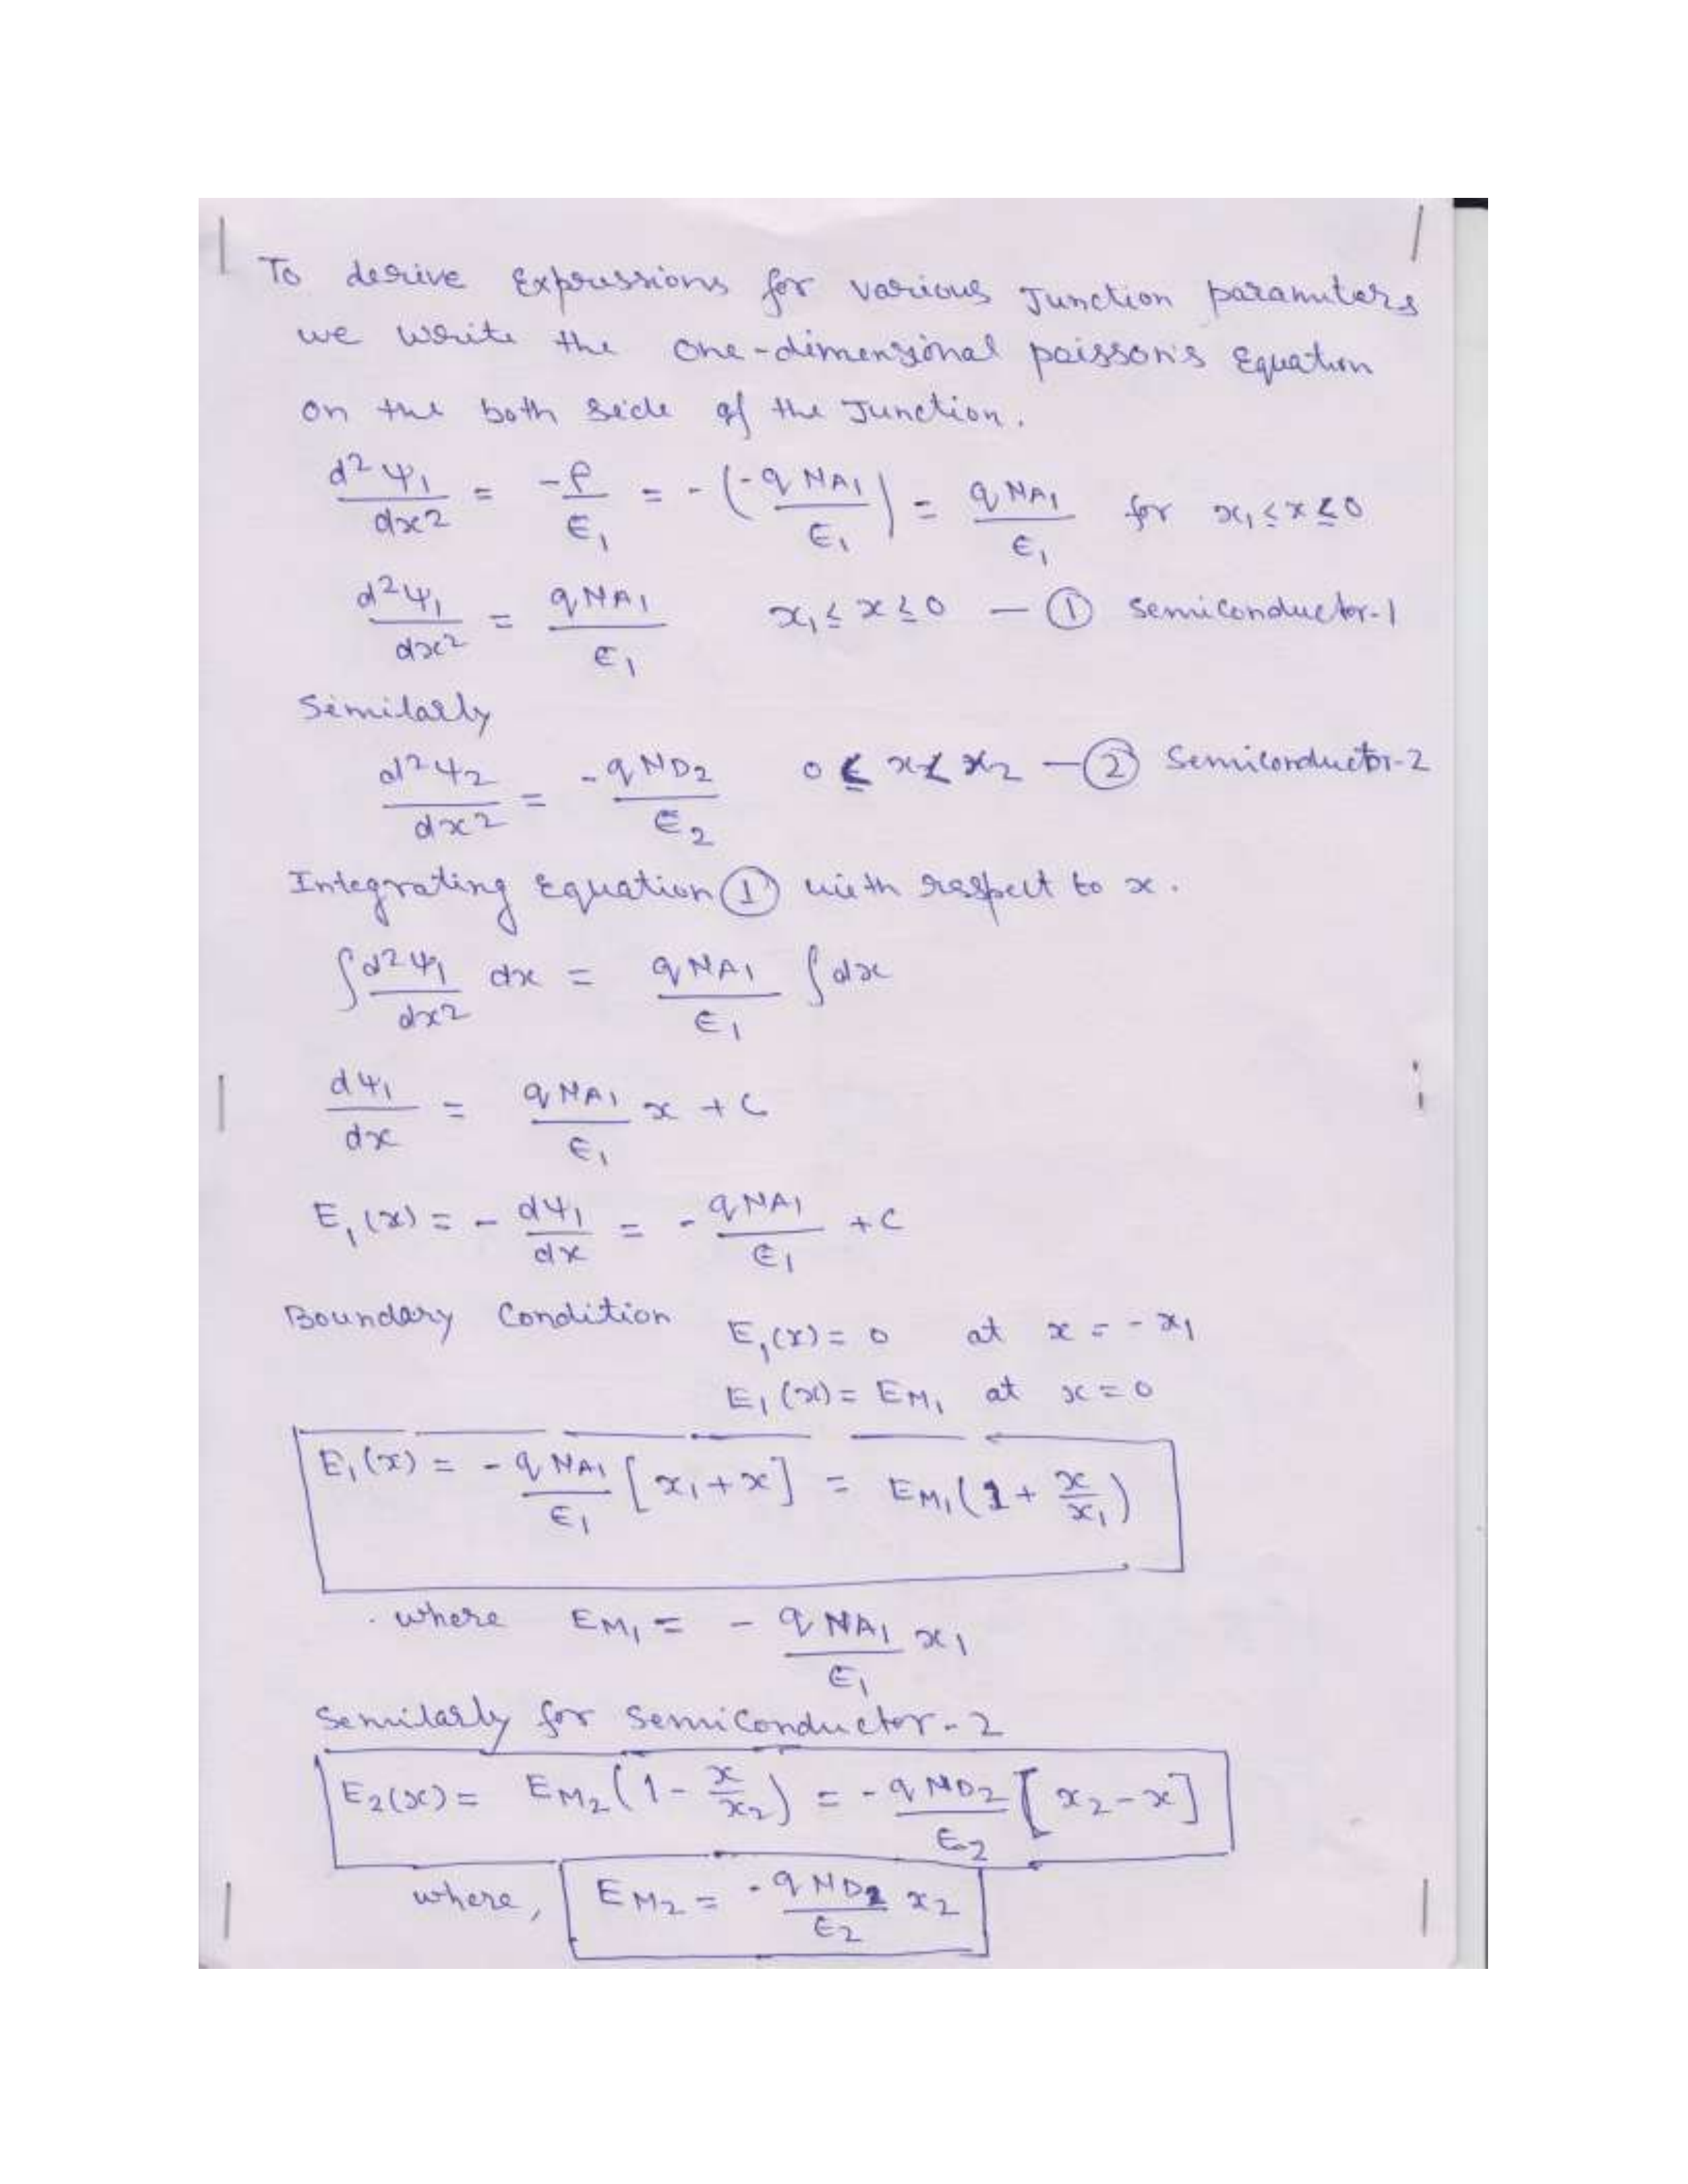 To derive Expressions for various Junction parameters
we write the one-dimensional poisson's Equation
on the both side of the Junction.
d²ψ₁/dx² = -ρ/ϵ₁ = -(-qNA₁/ϵ₁) = qNA₁/ϵ₁ for x₁ ≤ x ≤ 0
d²ψ₁/dx² = qNA₁/ϵ₁ x₁ ≤ x ≤ 0 — ① Semiconductor-1
Similarly
d²ψ₂/dx² = -qND₂/ϵ₂ 0 ≤ x < x₂ — ② Semiconductor-2
Integrating Equation ① with respect to x.
∫ d²ψ₁/dx² dx = qNA₁/ϵ₁ ∫ dx
dψ₁/dx = qNA₁/ϵ₁ x + C
E₁(x) = - dψ₁/dx = - qNA₁/ϵ₁ + C
Boundary Condition E₁(x) = 0 at x = -x₁
E₁(x) = EM₁ at x = 0
E₁(x) = - qNA₁/ϵ₁ [x₁ + x] = EM₁(1 + x/x₁)
where EM₁ = - qNA₁/ϵ₁ x₁
Similarly for Semiconductor-2
E₂(x) = EM₂(1 - x/x₂) = - qND₂/ϵ₂ [x₂ - x]
where, EM₂ = - qND₂/ϵ₂ x₂